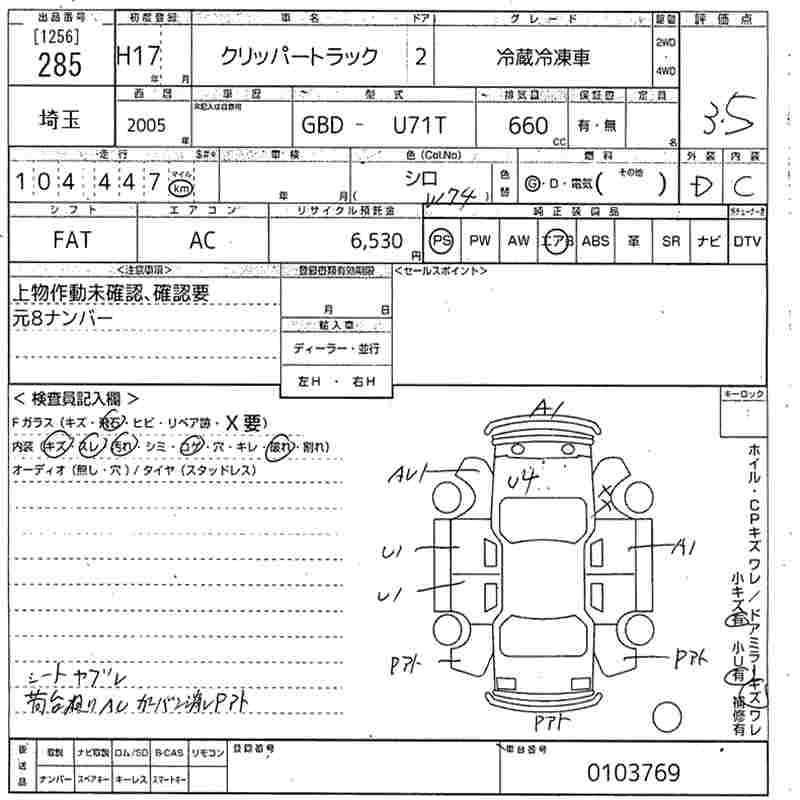 出品番号 初度登録 車名 ドア グレード 駆動 評価点
[1256]
285 H17 年 月 クリッパートラック 2 冷蔵冷凍車 2WD ・ 4WD 3.5
西暦 車歴 型式 排気量 保証書 定員
※記入は自家用可
埼玉 2005 年 GBD - U71T 660 CC 有・無 名
走行 S#* 車検 色 (Col.No) 燃料 外装 内装
104,447 マイル km 年 月 シロ ( W74 ) 色替 G・D・電気 ( その他 ) D C
シフト エアコン リサイクル預託金 純正装備品
FAT AC 6,530 円 PS PW AW エアB ABS 革 SR ナビ DTV
<注意事項> 登録書類有効期限 <セールスポイント>
上物作動未確認、確認要
元8ナンバー
月 日
輸入車
ディーラー・並行
左H ・ 右H
< 検査員記入欄 > キーロック
Fガラス (キズ・飛石・ヒビ・リペア跡・X要)
内装 (キズ・スレ・汚れ・シミ・コゲ・穴・キレ・破れ・割れ)
オーディオ (無し・穴) / タイヤ (スタッドレス)
A1
AU1 U4 XX
U1 A1
U1
Pアト Pアト
Pアト
シートヤブレ
荷台廻りAU カーバン消しPアト
ホイル・CPキズ ワレ / ドアミラーキズ ワレ
小キズ有 小U有 補修有
後送品 取説 ナビ取説 ロム/SD B-CAS リモコン 登録番号 車台番号
ナンバー スペアキー キーレス スマートキー 0103769